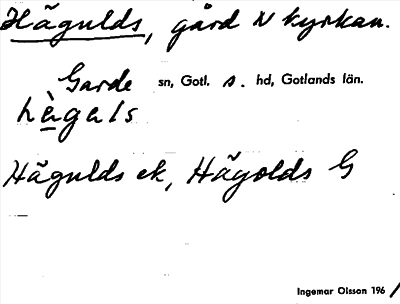 Hägulds, gård N kyrkan.
Garde sn, Gotl. s. hd, Gotlands län.
hä̀gals
Hägulds ek, Hägolds G
Ingemar Olsson 1961